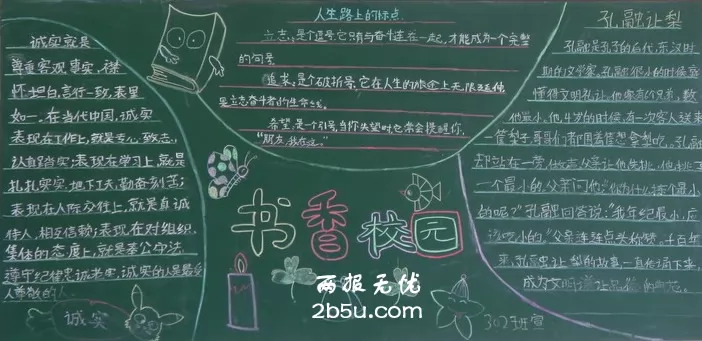 诚实就是
尊重客观事实，襟
怀坦白，言行一致，表里
如一。在当代中国，诚实
表现在工作上，就是专心致志，
认真踏实；表现在学习上，就是
扎扎实实，地下工夫，勤奋刻苦；
表现在人际交往上，就是真诚
待人，相互信赖；表现在对组织
集体的态度上，就是奉公守法，
遵守纪律忠诚老实，诚实的人是最受
人尊敬的人。
诚实
人生路上的标点
立志，是个逗号，它只有与奋斗连在一起，才能成为一个完整
的句号
追求，是个破折号，它在人生的旅途上无限延伸
是立志奋斗者的生命线。
希望，是个引号，当你失望时它常会提醒你，
“朋友，我在这。”
书香校园
两报无忧
2b5u.com
孔融让梨
孔融是孔子的后代，东汉时
期的文学家，孔融很小的时候就
懂得文明礼让，他有个兄弟，数
他最小，他4岁的时候，有一次客人送来
一筐梨子，哥哥们都围着想拿梨吃，孔融
却站在一旁，父亲让他先挑，他挑了
一个最小的，父亲问他：“你为什么挑个最小
的呢？”孔融回答说：“我年纪最小，应
该吃小的。”父亲连连点头称赞，千百年
来，孔融让梨的故事一直传诵下来，
成为文明礼让的典范。
302班宣